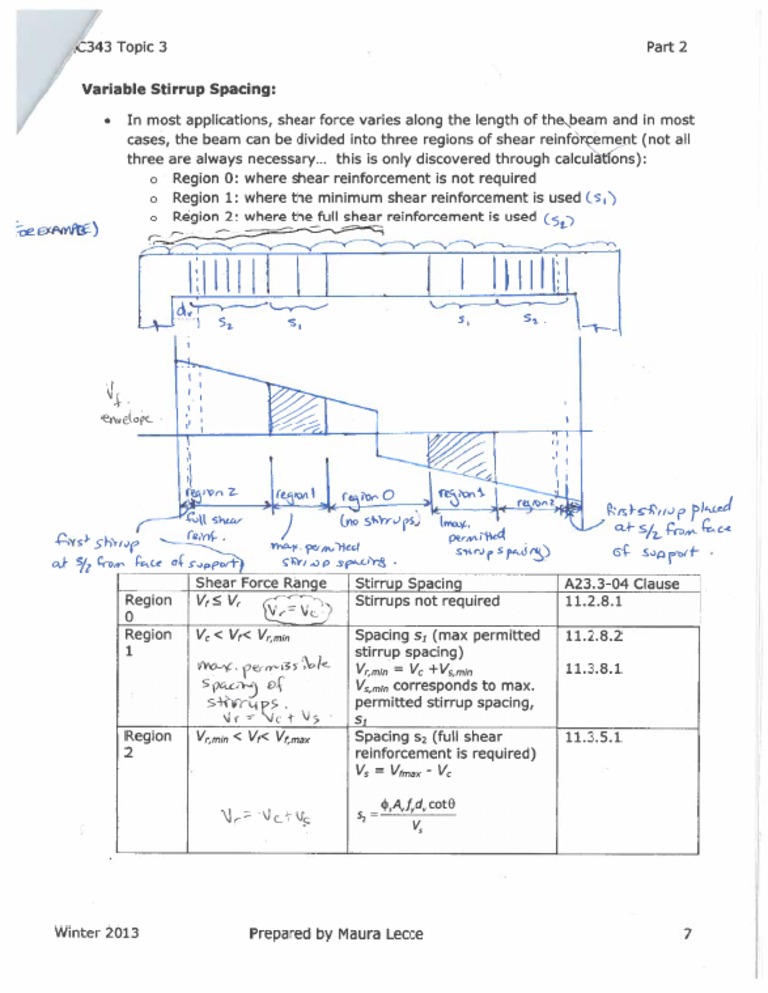 C343 Topic 3 Part 2
Variable Stirrup Spacing:
• In most applications, shear force varies along the length of the beam and in most
cases, the beam can be divided into three regions of shear reinforcement (not all
three are always necessary... this is only discovered through calculations):
o Region 0: where shear reinforcement is not required
o Region 1: where the minimum shear reinforcement is used (S₁)
o Region 2: where the full shear reinforcement is used (S₂)
EXAMPLE)
dᵥ
S₂ S₁ S₁ S₂
Vf
envelope
region 2 region 1 region 0 region 1 region 2
full shear
reinf.
(no stirrups)
(max.
permitted
stirrup spacing)
max. permitted
stirrup spacing.
first stirrup
at S/2 from face of support)
first stirrup placed
at S/2 from face
of support.
Shear Force Range Stirrup Spacing A23.3-04 Clause
Region
0
Vf ≤ Vr
Vr = Vc
Stirrups not required
11.2.8.1
Region
1
Vc < Vf< Vr,min
max. permissible
spacing of
stirrups.
Vr = Vc + Vs
Spacing s₁ (max permitted
stirrup spacing)
Vr,min = Vc +Vs,min
Vs,min corresponds to max.
permitted stirrup spacing,
s₁
11.2.8.2
11.3.8.1
Region
2
Vr,min < Vf< Vf,max
Vr = Vc + Vs
Spacing s₂ (full shear
reinforcement is required)
Vs = Vfmax - Vc
s₂ = ϕsAvfydv cotθ
Vs
11.3.5.1
Winter 2013 Prepared by Maura Lecce 7